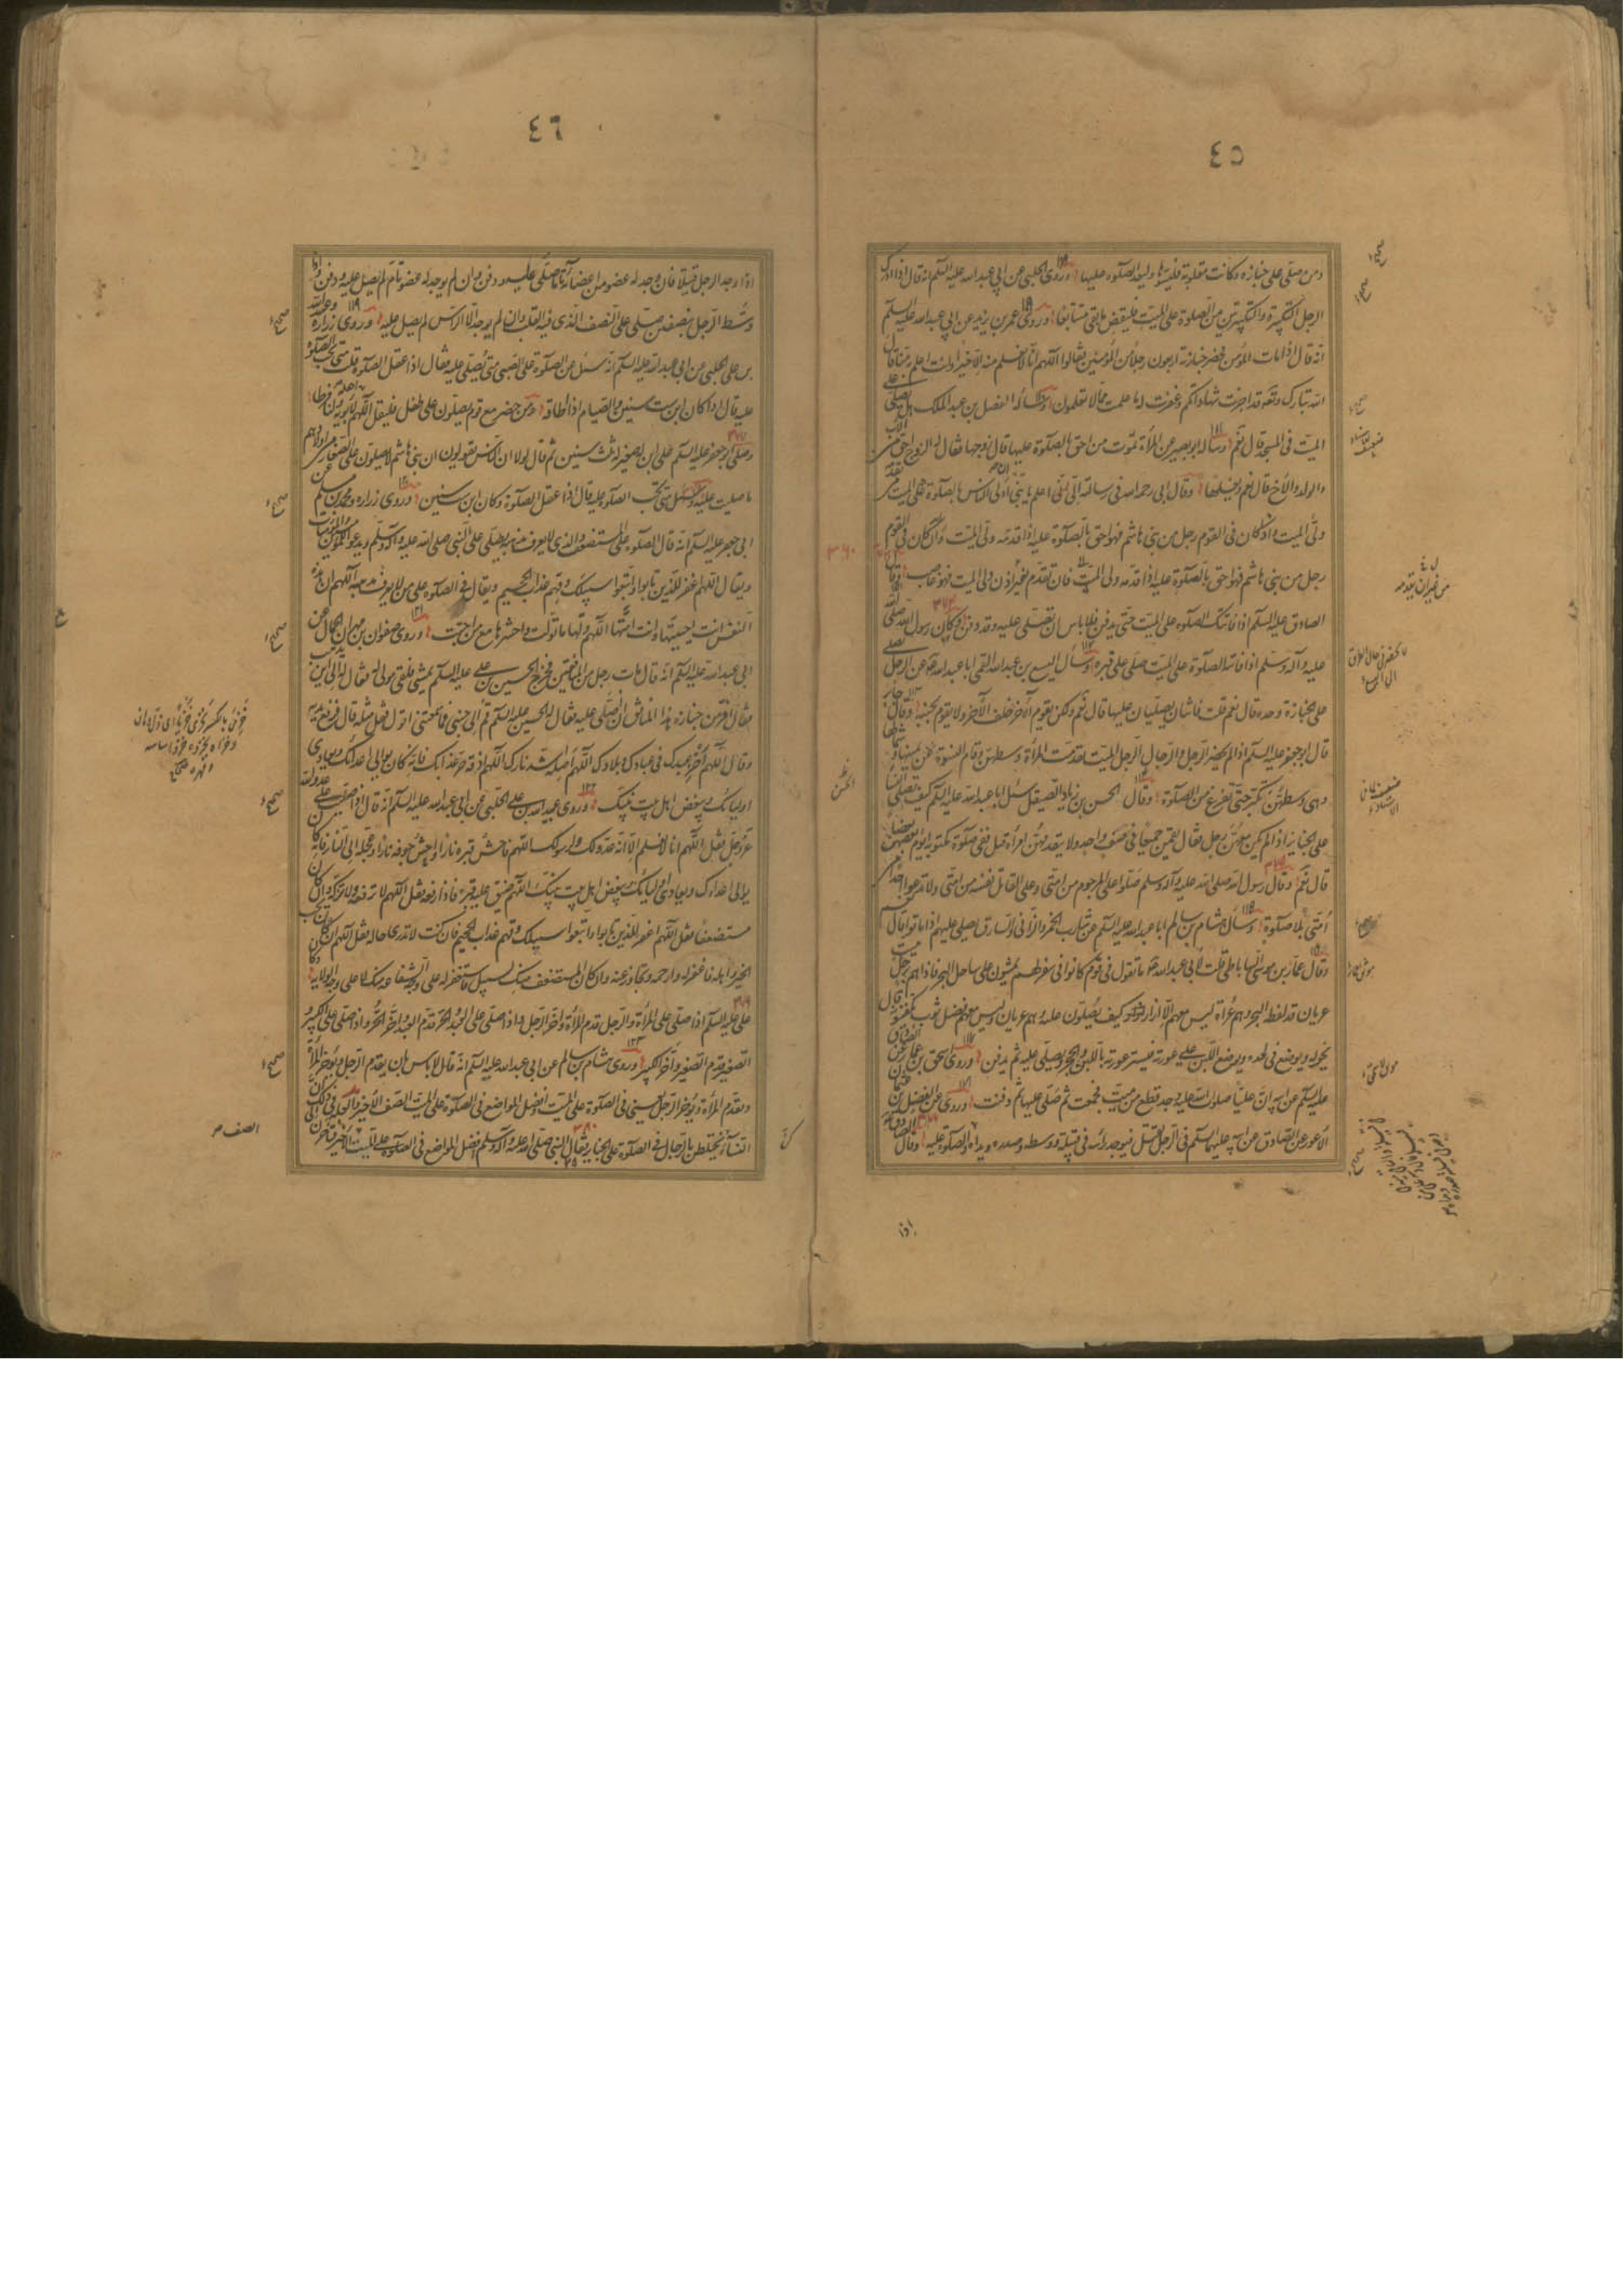 ٤٥
ومن صلى على جنازة وكانت مقلوبة فليسوّها وليعد الصلوة عليها وروى الحلبي عن ابي عبد الله عليه السلم انه قال اذا ادرك
الرجل التكبيرة والتكبيرتين من الصلوة على الميت فليقض ما بقى متتابعا وروى عمر بن يزيد عن ابي عبد الله عليه السلم
انه قال اذا مات المؤمن فحضر جنازته اربعون رجلا من المؤمنين فقالوا اللهم انا لا نعلم منه الا خيرا وانت اعلم به منا قال
الله تبارك وتعالى قد اجزت شهاداتكم وغفرت له ما علمت مما لا تعلمون وسأله الفضل بن عبد الملك هل يصلى على
الميت في المسجد قال نعم وسأله ابو بصير عن المرأة تموت من احق بالصلوة عليها قال زوجها فقال له الزوج احق من الاب
والولد والاخ قال نعم ويغسلها وقال ابي رحمه الله في رسالته الى اعلم يا بني ان اولى الناس بالصلوة على الميت من يقدمه
ولى الميت وان كان في القوم رجل من بني هاشم فهو احق بالصلوة عليه اذا قدمه ولى الميت وان كان في القوم
رجل من بني هاشم فهو احق بالصلوة عليه اذا قدمه ولى الميت فان تقدم بغير اذن ولى الميت فهو غاصب وقال
الصادق عليه السلم اذا فاتتك الصلوة على الميت حتى يدفن فلا باس ان تصلى عليه وقد دفن وكان رسول الله صلى الله
عليه وآله وسلم اذا فاتته الصلوة على الميت صلى على قبره وسأل اليسع بن عبد الله القمى ابا عبد الله عن الرجل يصلى
على الجنازة وحده قال نعم قلت فاثنان يصليان عليها قال نعم ولكن يقوم الآخر خلف الآخر ولا يقوم بجنبه وقال جابر
قال ابو جعفر عليه السلم اذا لم يحضر الرجل الميت تقدمت المرأة وسطهن وقام النسوة عن يمينها وشمالها
وهى وسطهن تكبر حتى تفرغ من الصلوة وقال الحسن بن زياد الصيقل سئل ابا عبد الله عليه السلم كيف تصلى النساء
على الجنائز اذا لم يكن معهن رجل فقال يقمن جميعا في صف واحد ولا يتقدمهن امرأة قيل ففى صلوة مكتوبة ايؤم بعضهن بعضا
قال نعم وقال رسول الله صلى الله عليه وآله وسلم صلوا على المرجوم من امتى وعلى القاتل نفسه من امتى ولا تدعوا احدا من
امتى بلا صلوة وسأل هشام بن سالم ابا عبد الله عليه السلم عن شارب الخمر والزاني والسارق يصلى عليهم اذا ماتوا قال نعم
وقال عمار بن موسى الساباطى قلت لابي عبد الله ما تقول في قوم كانوا في سفر لهم يمشون على ساحل البحر فاذا هم برجل ميت
عريان قد لفظه البحر وهم عراة ليس معهم الا ازار كيف يصلون عليه وهو عريان وليس معهم فضل ثوب يكفنونه قال
يحفر له ويوضع في لحده ويوضع اللبن على عورته فيستر عورته باللبن والحجر ويصلى عليه ثم يدفن وروى اسحق بن عمار عن الصادق
عليه السلم عن ابيه ان عليا صلوات الله عليه وجد قطعا من ميت فجمعت ثم صلى عليها ثم دفنت وروى عن الفضل بن عثمان
الاعور عن الصادق عن ابيه عليهما السلم في الرجل يقتل فيوجد رأسه في قبيلة ووسطه وصدره ويداه والصلوة عليه وقال الصادق
اذا
٤٦
اذا وجد الرجل قتيلا فان وجد له عضو من اعضائه تام صلى عليه ودفن وان لم يوجد له عضو تام لم يصل عليه ودفن واذا
وسط الرجل نصفين صلى على النصف الذي فيه القلب وان لم يوجد الا الراس لم يصل عليه وروى زرارة وعبيد الله
بن على الحلبي عن ابي عبد الله عليه السلم انه سئل عن الصلوة على الصبى متى يصلى عليه فقال اذا عقل الصلوة قلت متى تجب الصلوة
عليه قال اذا كان ابن ست سنين والصيام اذا اطاقه ومن حضر مع قوم يصلون على طفل فليقل اللهم اجعله لابويه ولنا فرطا
وصلى ابو جعفر عليه السلم على ابن له صغير له ثلث سنين ثم قال لولا ان الناس يقولون ان بني هاشم لا يصلون على الصغار من اولادهم
ما صليت عليه وسئل متى تجب الصلوة عليه قال اذا عقل الصلوة وكان ابن ست سنين وروى زرارة ومحمد بن مسلم عن
ابي جعفر عليه السلم انه قال الصلوة على المستضعف والذى لا يعرف مذهبه يصلى على النبي صلى الله عليه وآله وسلم ويدعو للمؤمنين والمؤمنات
ويقال اللهم اغفر للذين تابوا واتبعوا سبيلك وقهم عذاب الجحيم ويقال في الصلوة على من لا يعرف مذهبه اللهم ان هذه
النفس انت احييتها وانت امتها اللهم ولها ما تولت واحشرها مع من احبت وروى صفوان بن مهران الجمال عن
ابي عبد الله عليه السلم انه قال مات رجل من المنافقين فخرج الحسين بن على عليه السلم يمشى فلقى مولى له فقال له الى اين تذهب
فقال افر من جنازة هذا المنافق ان اصلى عليه فقال له الحسين عليه السلم قم الى جنبى فما سمعتنى اقول فقل مثله قال فرفع يديه
وقال اللهم اخز عبدك في عبادك وبلادك اللهم اصله اشد نارك اللهم اذقه حر عذابك فانه كان يوالى اعداءك ويعادى
اولياءك ويبغض اهل بيت نبيك وروى عبيد الله بن على الحلبي عن ابي عبد الله عليه السلم انه قال اذا صليت على عدو الله
عز وجل فقل اللهم انا لا نعلم الا انه عدو لك ولرسولك اللهم فاحش قبره نارا واحش جوفه نارا وعجله الى النار فانه كان
يوالى اعداءك ويعادى اولياءك ويبغض اهل بيت نبيك اللهم ضيق عليه قبره فاذا رفع فقل اللهم لا ترفعه ولا تزكه وان كان
مستضعفا فقل اللهم اغفر للذين تابوا واتبعوا سبيلك وقهم عذاب الجحيم فان كنت لا تدرى ما حاله فقل اللهم ان كان يحب
الخير واهله فاغفر له وارحمه وتجاوز عنه وان كان المستضعف منك بسبيل فاستغفر له على وجه الشفاعة منك لا على وجه الولاية وكان
على عليه السلم اذا صلى على المرأة والرجل قدم المرأة واخر الرجل واذا صلى على العبد والحر قدم العبد واخر الحر واذا صلى على الكبير و
الصغير قدم الصغير واخر الكبير وروى هشام بن سالم عن ابي عبد الله عليه السلم انه قال لا باس بان يقدم الرجل ويؤخر المرأة
ويقدم المرأة ويؤخر الرجل يعنى في الصلوة على الميت وافضل المواضع في الصلوة على الميت الصف الاخير والعلة في ذلك ان
النساء كن يختلطن بالرجال في الصلوة على الجنايز فقال النبي صلى الله عليه وآله وسلم افضل المواضع في الصلوة على الميت الصف الاخير فتاخرن الى
الصف ص